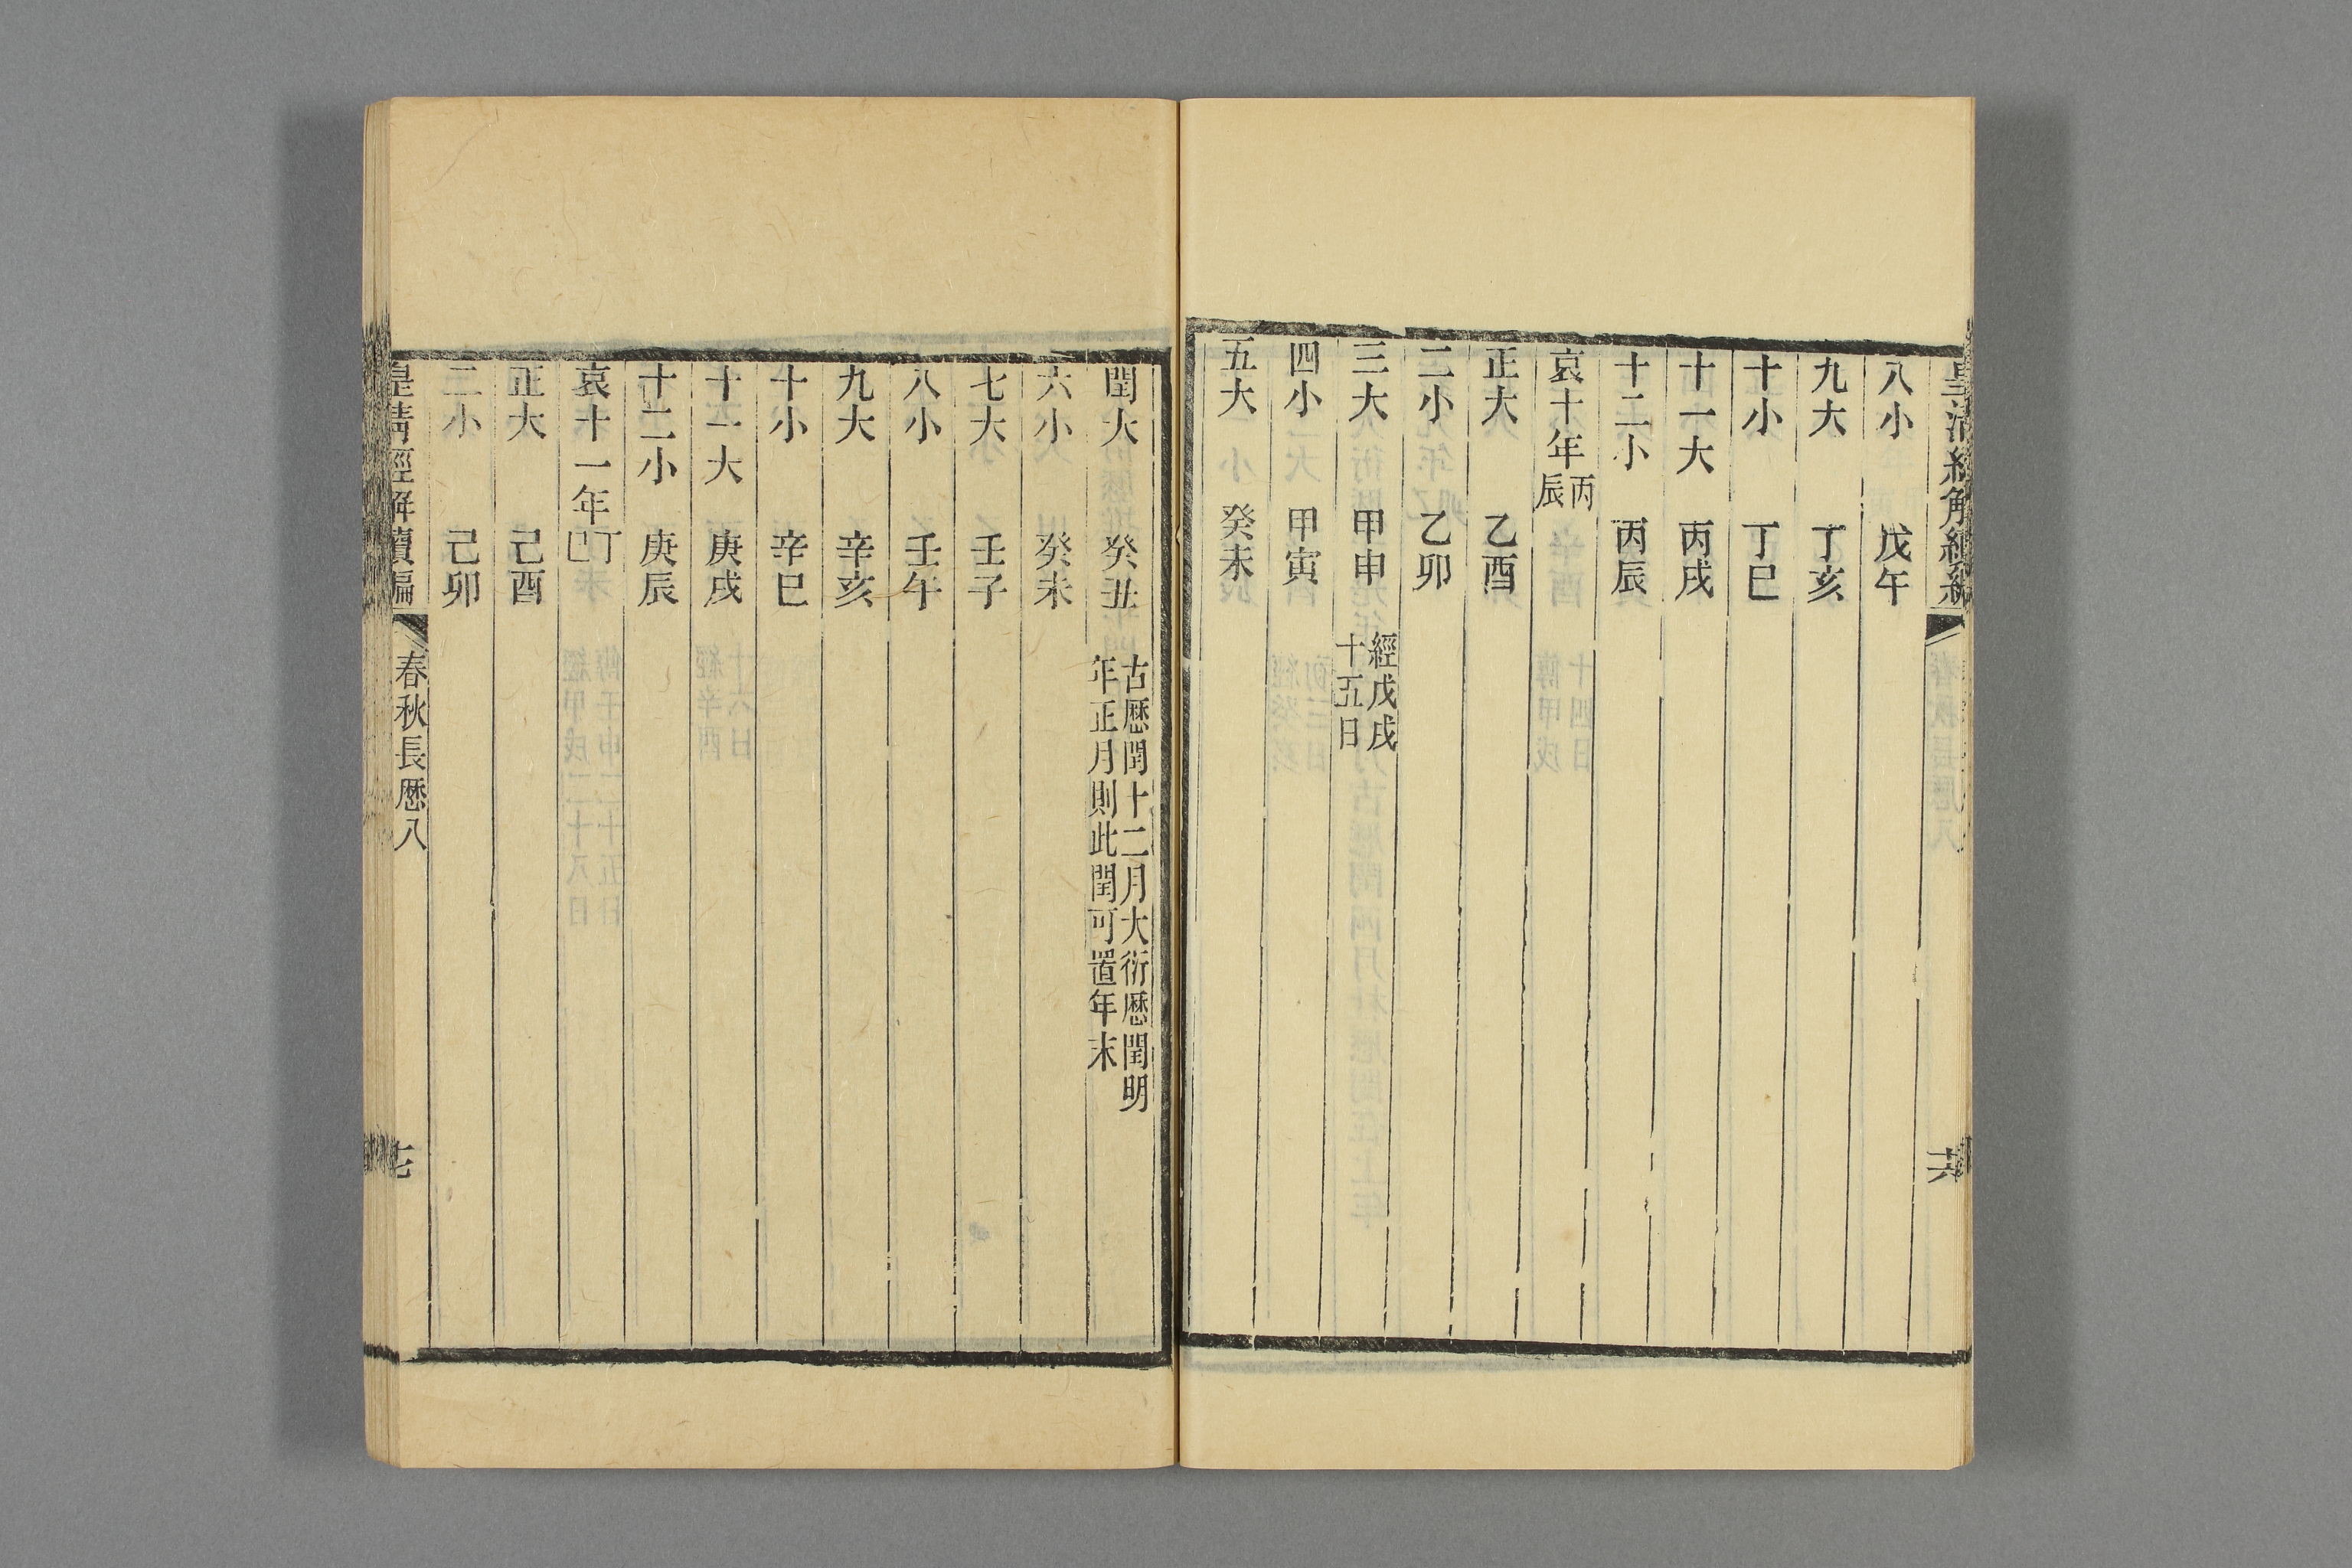 八小 戊午
九大 丁亥
十小 丁巳
十一大 丙戌
十二小 丙辰
哀十年丙辰
正大 乙酉
二小 乙卯
三大 甲申 經戊戌十五日
四小 甲寅
五大 癸未
閏大 癸丑 古厯閏十二月大衍厯閏明年正月則此閏可置年末
六小 癸未
七大 壬子
八小 壬午
九大 辛亥
十小 辛巳
十一大 庚戌
十二小 庚辰
哀十一年丁巳
正大 己酉
二小 己卯
皇清經解續編 春秋長厯八